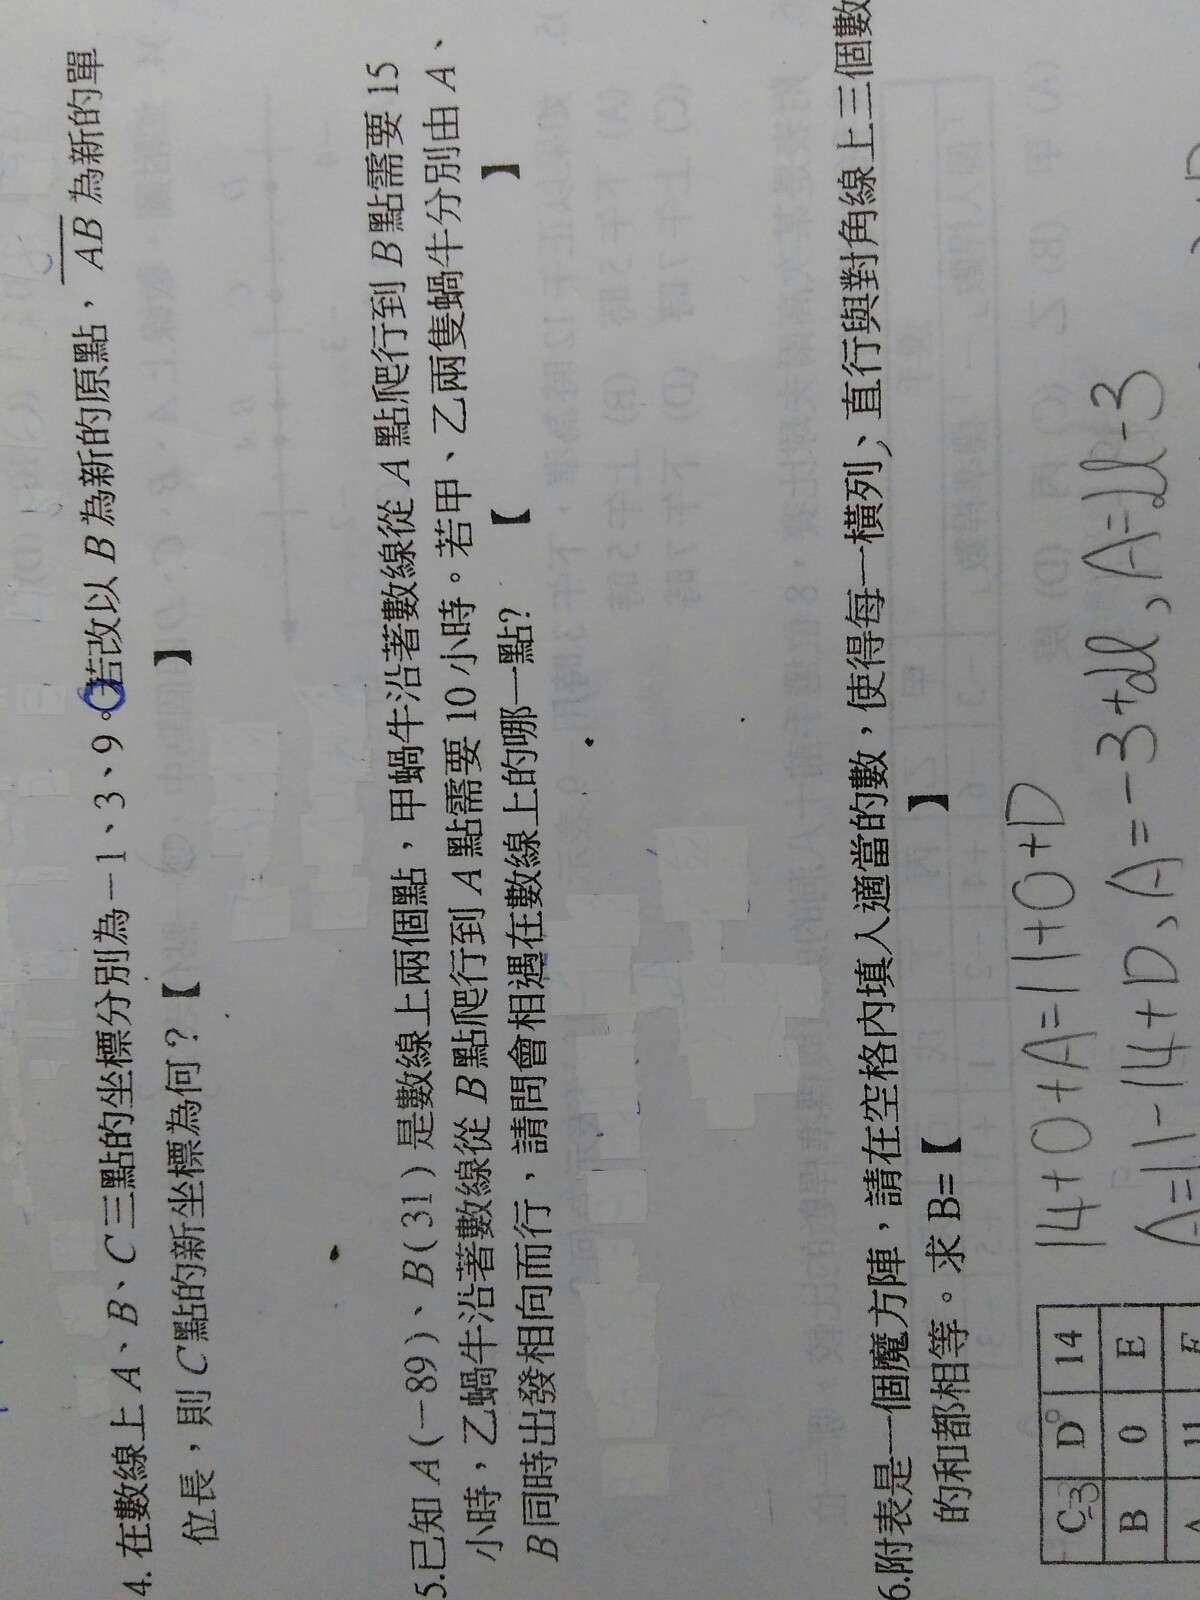 4. 在數線上 A、B、C 三點的坐標分別為－1、3、9。若改以 B 為新的原點，AB 為新的單
位長，則 C 點的新坐標為何？【 】
5.已知 A(－89)、B(31) 是數線上兩個點，甲蝸牛沿著數線從 A 點爬行到 B 點需要 15
小時，乙蝸牛沿著數線從 B 點爬行到 A 點需要 10 小時。若甲、乙兩隻蝸牛分別由 A、
B 同時出發相向而行，請問會相遇在數線上的哪一點？ 【 】
6.附表是一個魔方陣，請在空格內填入適當的數，使得每一橫列、直行與對角線上三個數
的和都相等。求 B=【 】
C -3 D 14
B 0 E
A 11 F
14+0+A=11+0+D
A=11-14+D、A=-3+